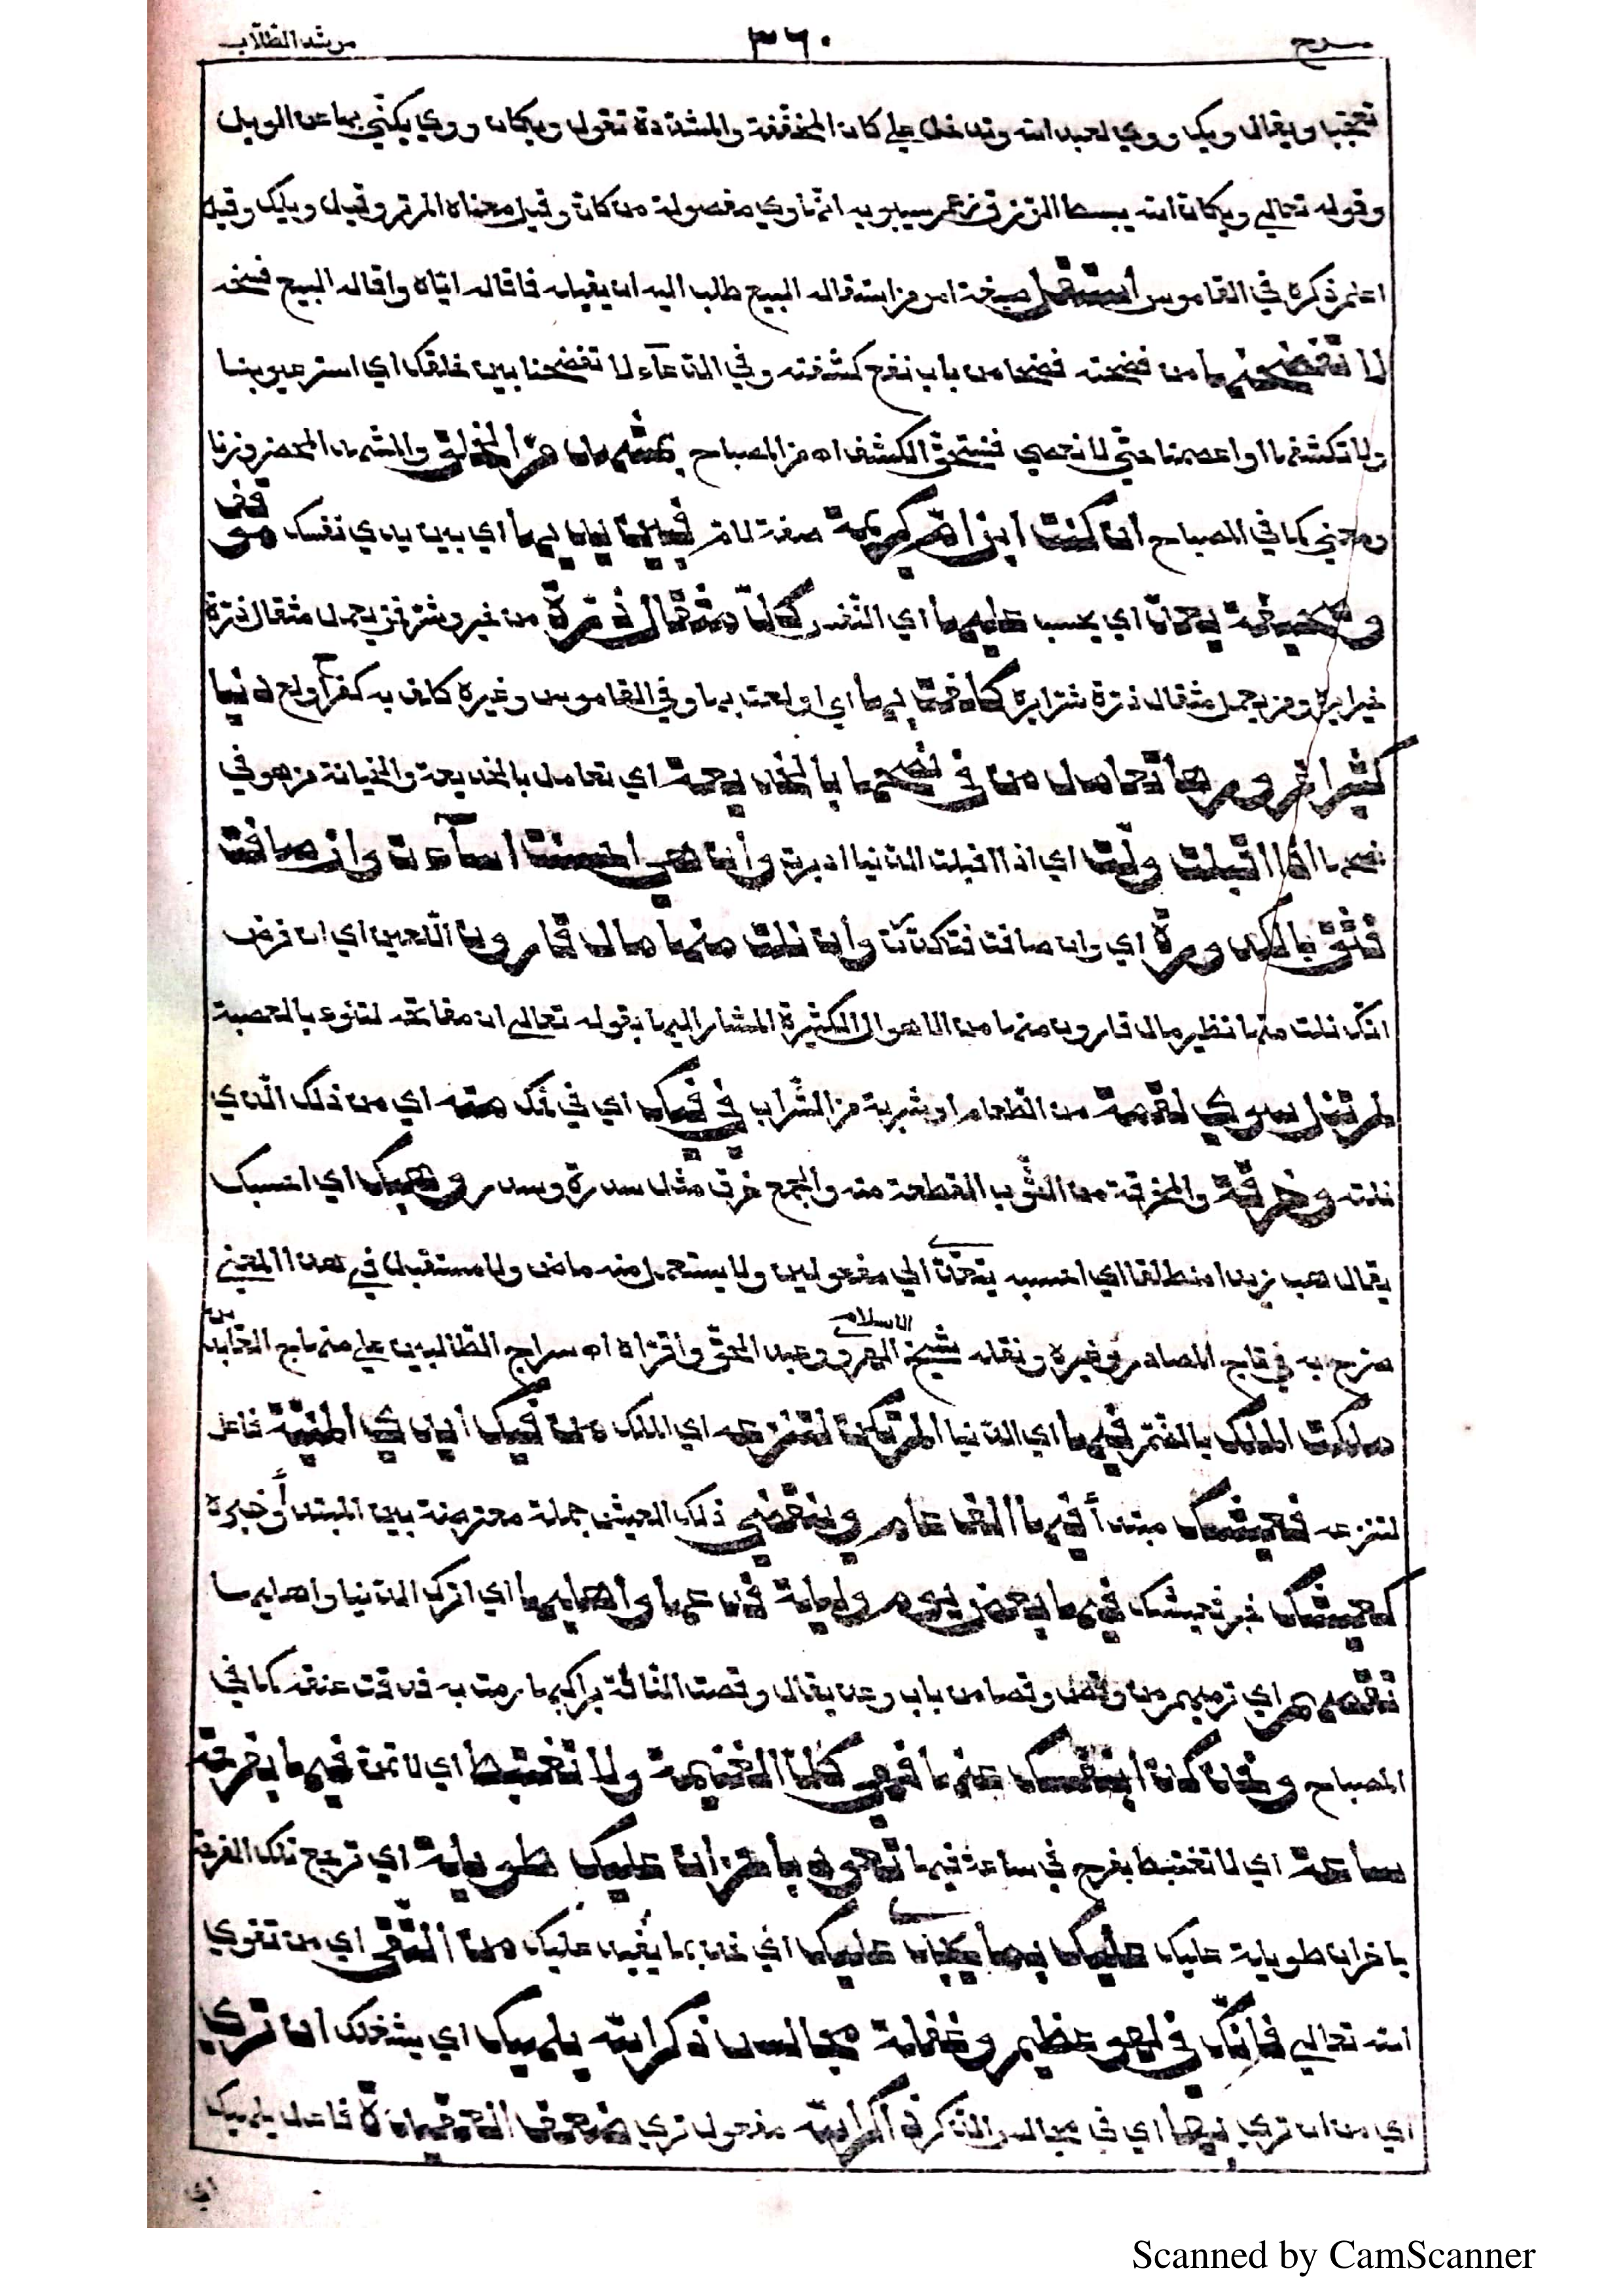 شرح ٣٦٠ مرشد الطلّاب
تعجّبا ويقال ويك ووي لعبد الله وتدخل علي كان المخفّفة والمشدّدة تقول ويكان ووي يكنّي بها عن الويل
وقوله تعالي ويكان الله يبسط الرّزق زعم سيبويه انّها وي مفصولة من كان وقيل معناه الم تر وقيل ويلك وقيل
اعلم ذكره في القاموس استقل صيغة امر من استقاله البيع طلب اليه ان يقيله فاقاله ايّاه واقاله البيع فسخه
لا تفضحنها من فضحته فضحا من باب نفع كشفته وفي الدّعآء لا تفضحنا بين خلقك اي استر عيوبنا
ولا تكشفها او اعصمنا حتّي لا نعصي فنستحقّ الكشف اه من المصباح بمشهد من الخلق والمشهد المحضر وزنا
ومعني كما في المصباح ان كنت ابن امّ كريمة صفة لامّ فبين يديها اي بين يدي نفسك موقف
وصحيفة يعدّ اي يحسب عليها اي النّفس كلّ مثقال ذرّة من خير وشرّ فمن يعمل مثقال ذرّة
خيرا يره ومن يعمل مثقال ذرّة شرّا يره كلفت بها اي اولعت بها وفي القاموس وغيره كلف به كفرح اولع دنيا
كثيرا غرورها تعامل من في نصحها بالخديعة اي تعامل بالخديعة والخيانة من هو في
نصحها اذا اقبلت ولّت اي اذا اقبلت الدّنيا ادبرت وان هي احسنت اسآءت وان صافت
فثق بالكدورة اي وان صافت فتكدّرت وان نلت منها مال قارون اللّعين اي ان فرض
انّك نلت منها نظير مال قارون منها من الاموال الكثيرة المشار اليها بقوله تعالي ان مفاتحه لتنوء بالعصبة
لم تنل سوي لقمة من الطّعام او شربة من الشّراب في فيك اي في فمك منه اي من ذلك الّذي
نلته وخرقة والخرقة من الثّوب القطعة منه والجمع خرق مثل سدرة وسدر وهبك اي احسبك
يقال هب زيدا منطلقا اي احسبه يتعدّي الي مفعولين ولا يستعمل منه ماض ولا مستقبل في هذا المعني
صرّح به في تاج المصادر وغيره ونقله شيخ الاسلام الهروي عبد الحقّ واقرّاه اه سراج الطّالبين علي منهاج العابدين
ملكت الملك بالضّم فيها اي الدّنيا الم تكن لتنزعه اي الملك من فيك ايدي المنيّة فاعل
لتنزعه فعيشك مبتدأ فيها الف عام وينقضي ذلك العيش جملة معترضة بين المبتدأ وخبره
كعيشك خبر فعيشك فيها بعض يوم وليلة فدعها واهليها اي اترك الدّنيا واهليها
تقصهم اي ترميهم من وقص وقصا من باب وعد يقال وقصت النّاقة براكبها رمت به فدقّت عنقه كما في
المصباح وخذ كذا بنفسك عنها فهي كلّ الغنيمة ولا تغتبط اي لا تمن فيها بفرحة
ساعة اي لا تغتبط بفرح في ساعة فيها تعود باحزان عليك طويلة اي ترجع تلك الفرحة
باحزان طويلة عليك عليك بما يجدي عليك اي خذ بما يفيد عليك من التّقي اي من تقوي
الله تعالي فانّك في لهو عظيم وغفلة مجالس ذكر الله يلهيك اي يشغلك ان تري
اي من ان تري بها اي في مجالس الذّكر ذاكرا لله مفعول تري ضعف العقيدة فاعل يلهيك